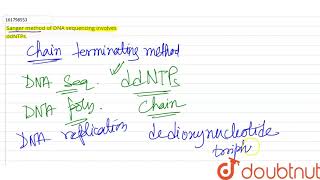 161798553
Sanger method of DNA sequencing involves
ddNTPs.
Chain terminating method
DNA Seq. ✓ ddNTPs
DNA poly. Chain
DNA replication dedioxynucleotide
triph
doubtnut